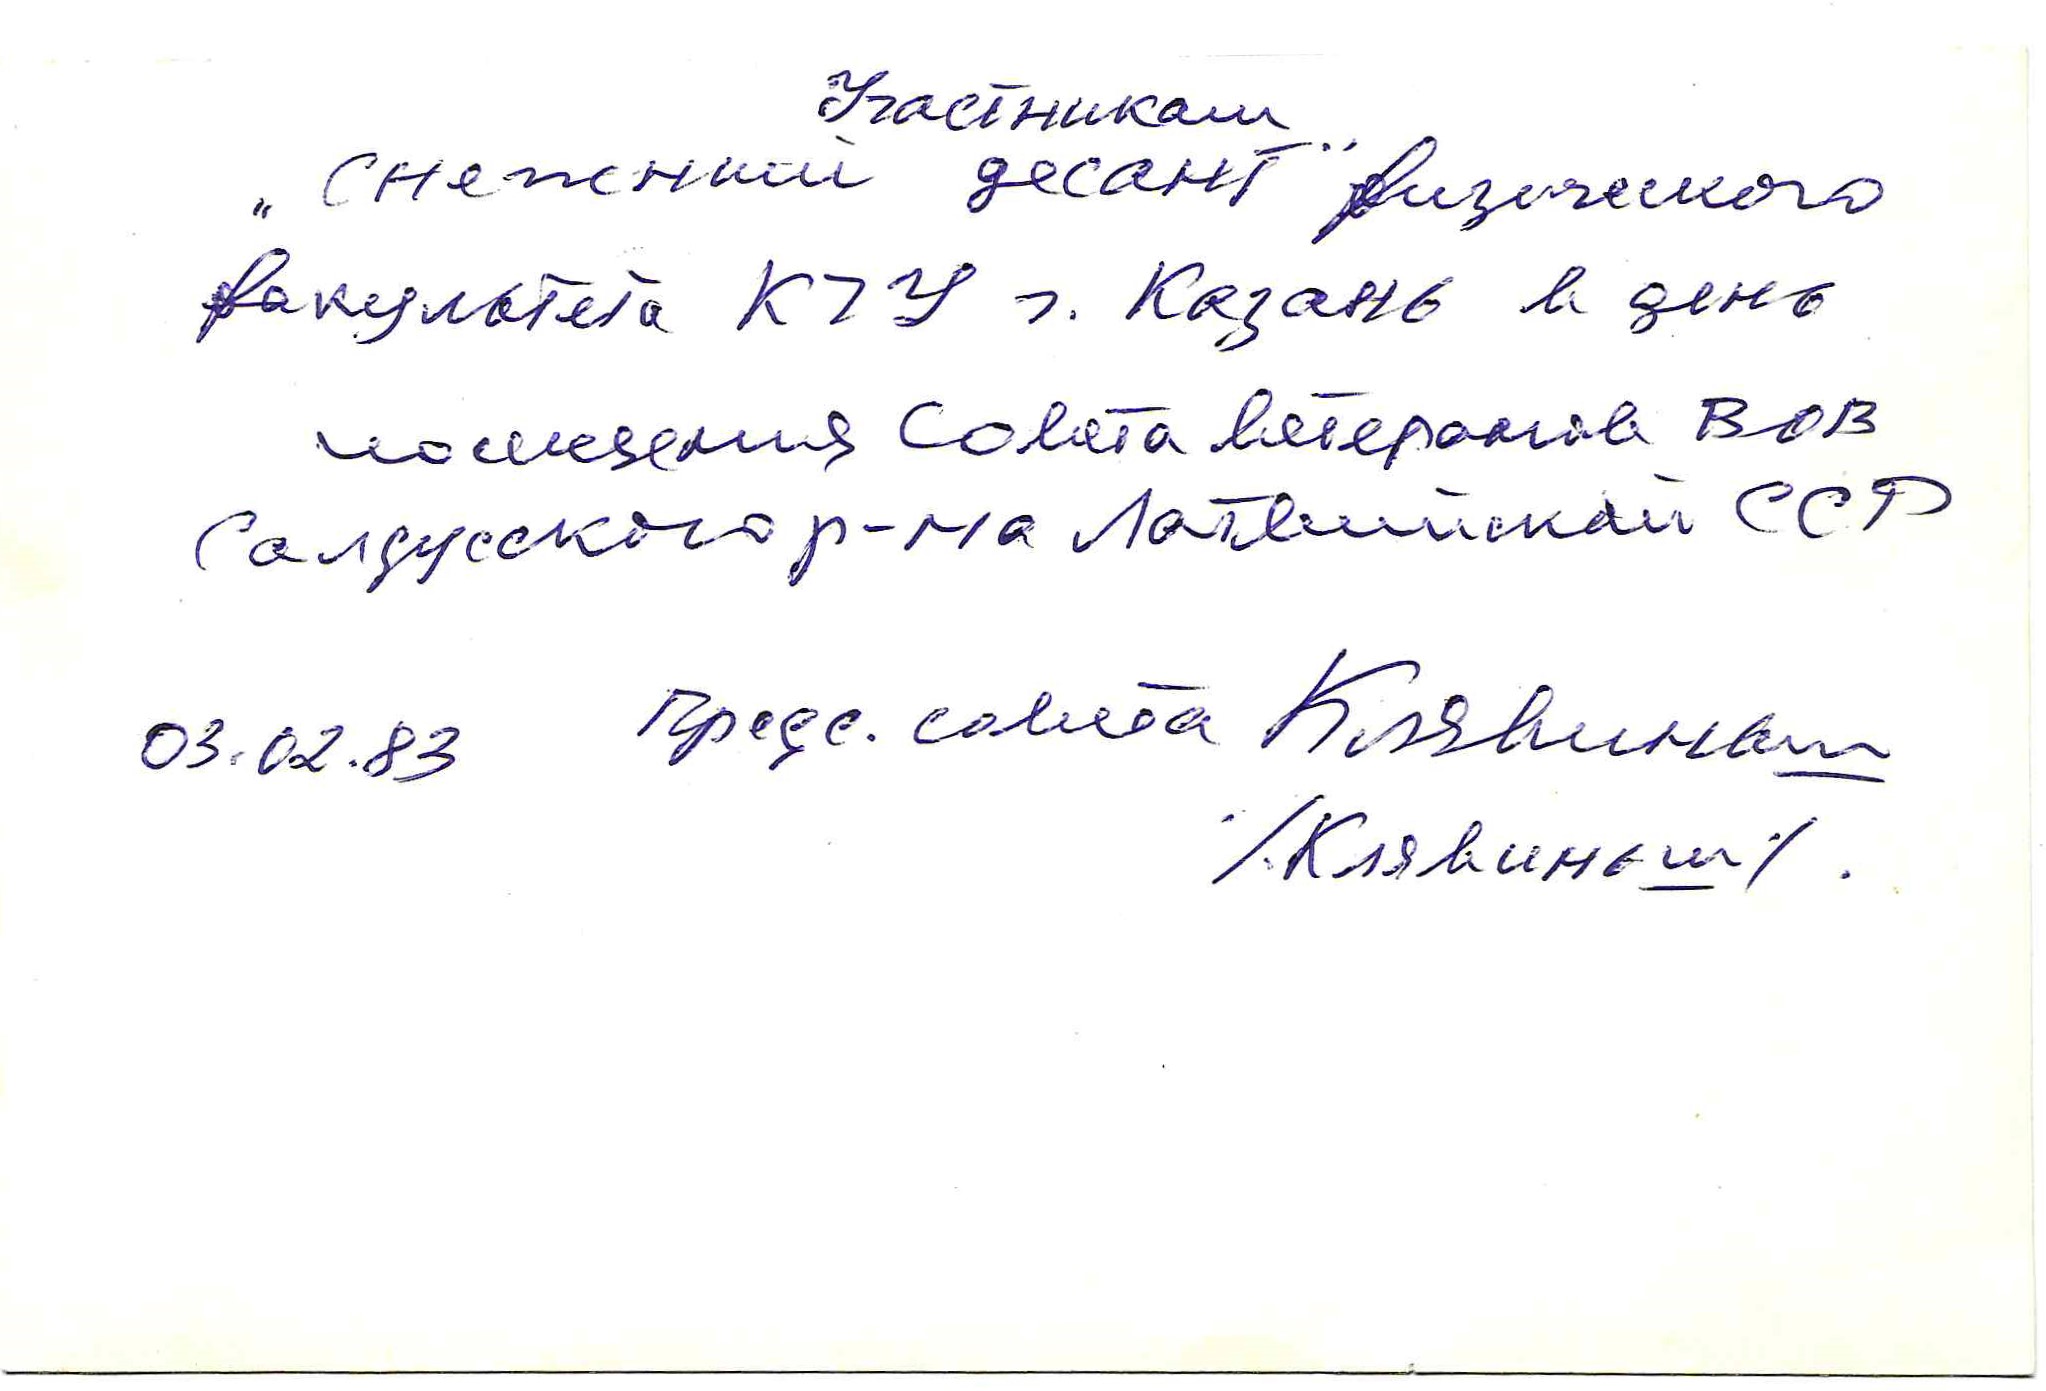 Участникам
„Снежний десант" физического
факультета КГУ г. Казань в день
посещения Совета ветеранов ВОВ
Салдусского р-на Латвийской ССР
03.02.83 Предс. совета Клявиньш
/Клявиньш/.